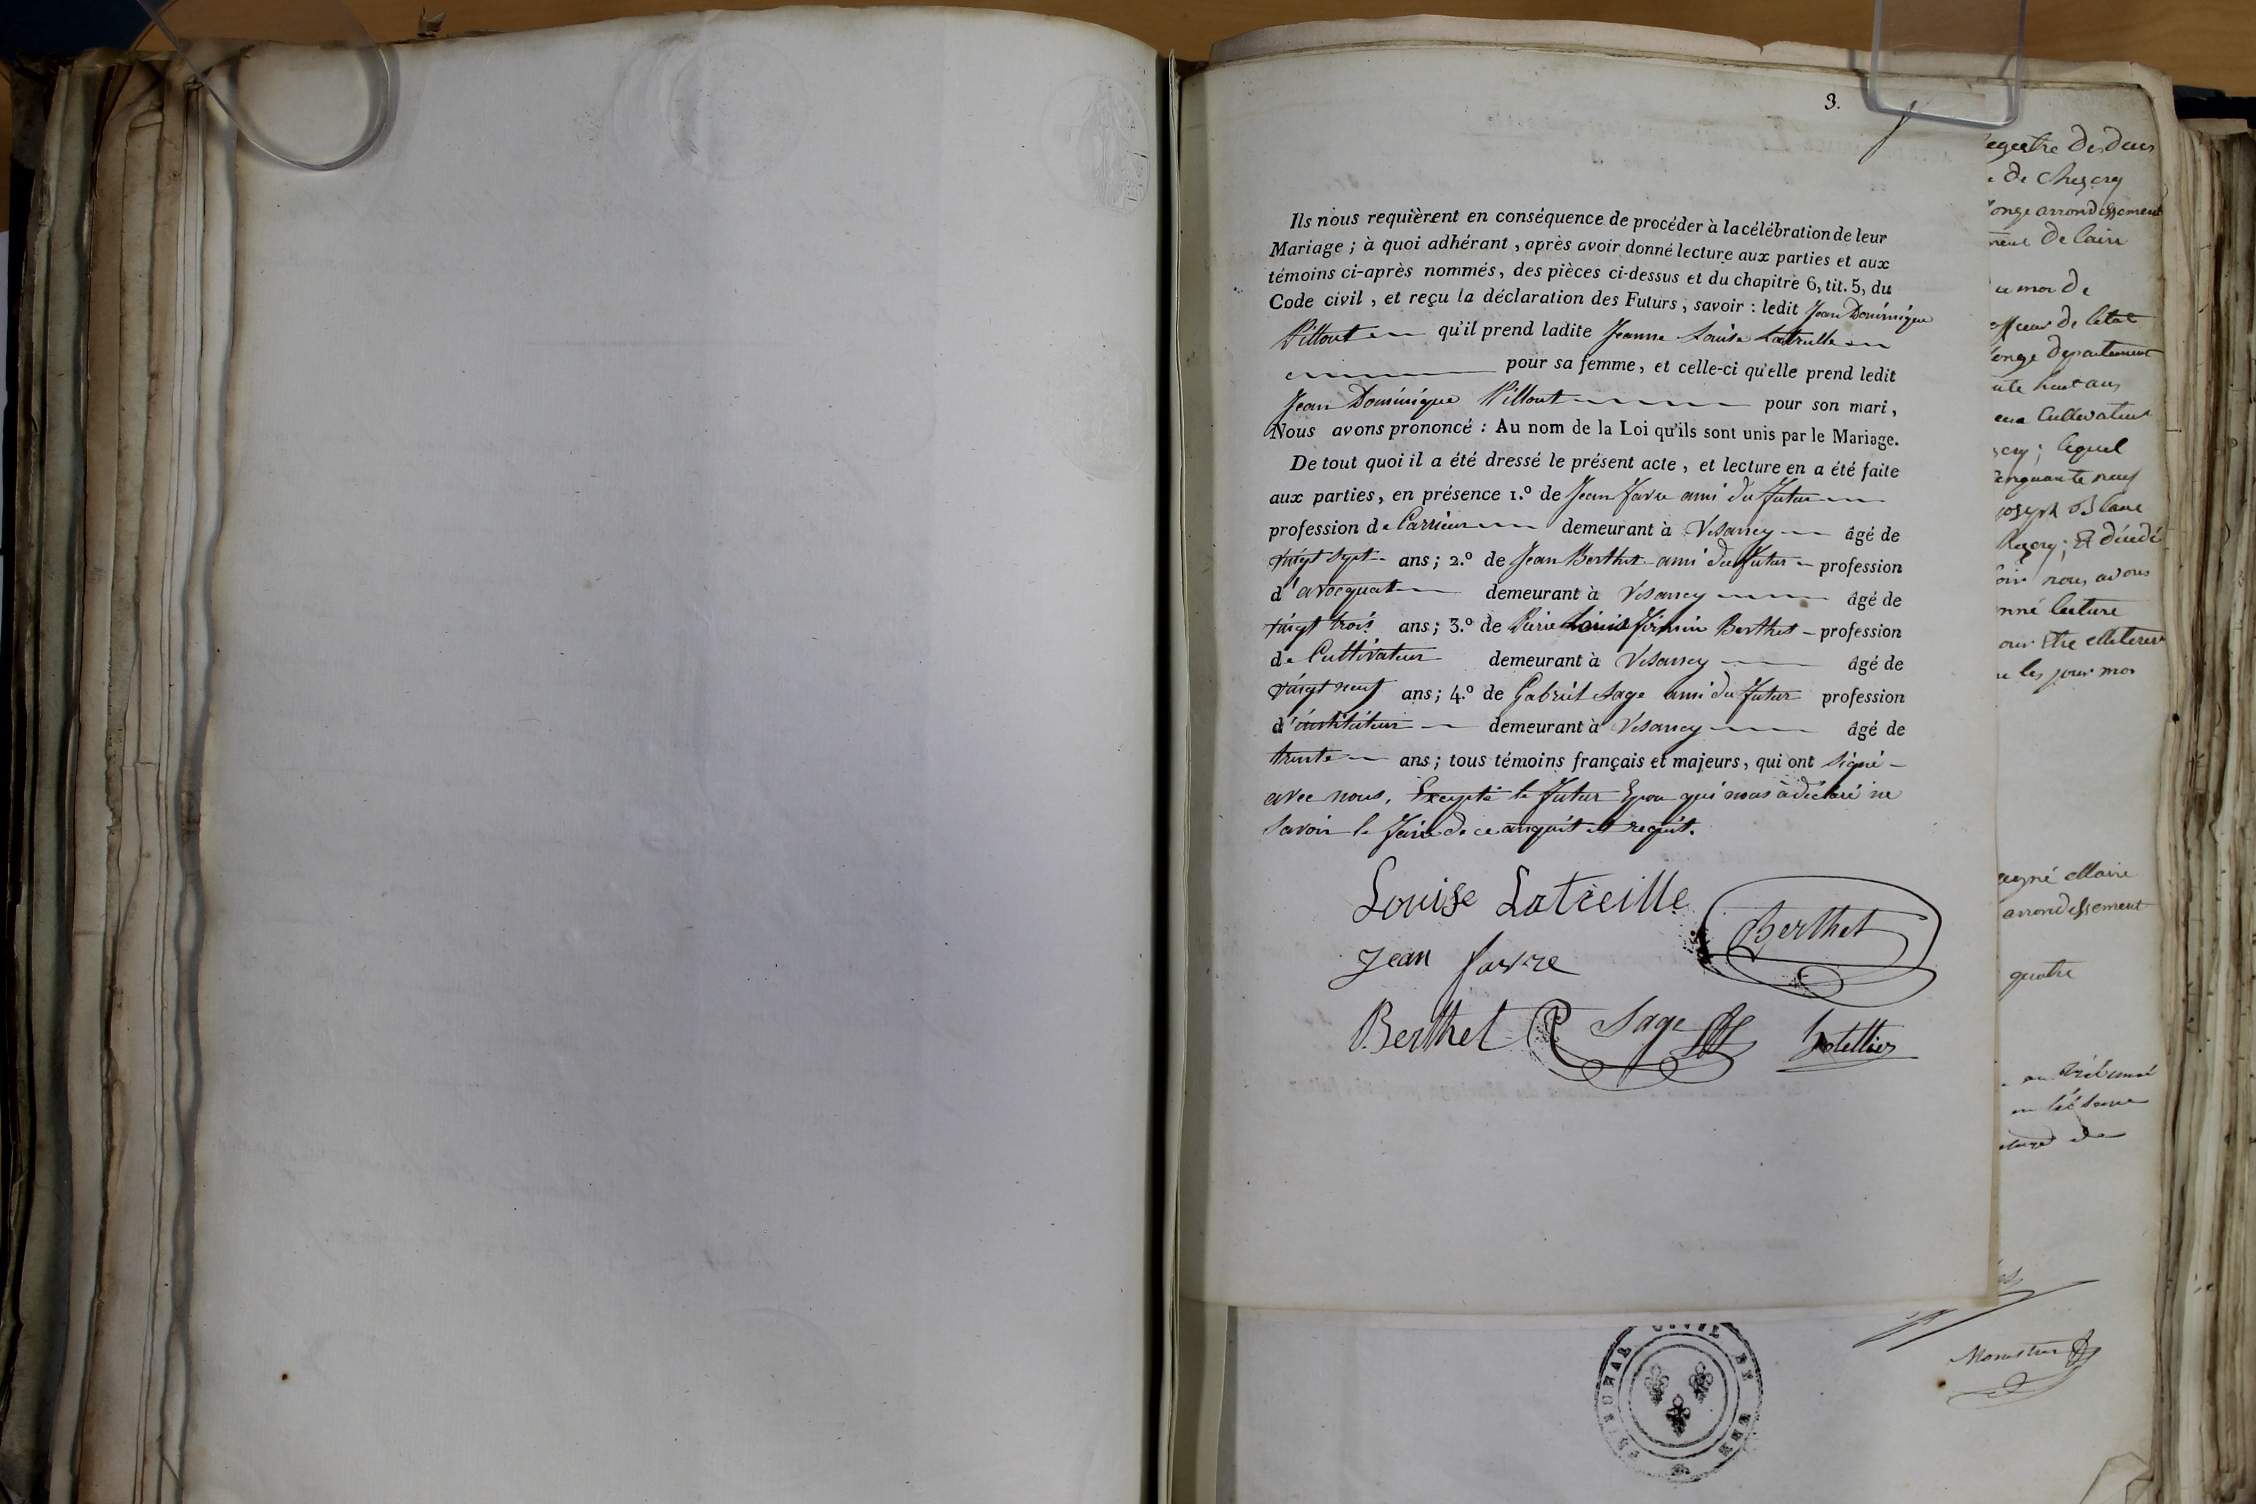 3.
Ils nous requièrent en conséquence de procéder à la célébration de leur
Mariage ; à quoi adhérant , après avoir donné lecture aux parties et aux
témoins ci-après nommés, des pièces ci-dessus et du chapitre 6, tit. 5, du
Code civil , et reçu la déclaration des Futurs , savoir : ledit Jean Dominique
Pillout qu'il prend ladite Jeanne Louise Latreille
pour sa femme, et celle-ci qu'elle prend ledit
Jean Dominique Pillout pour son mari,
Nous avons prononcé : Au nom de la Loi qu'ils sont unis par le Mariage.
De tout quoi il a été dressé le présent acte , et lecture en a été faite
aux parties, en présence 1.º de Jean favre ami du futur
profession de Carrieur demeurant à Vesancy âgé de
vingt sept ans ; 2.º de Jean Berthet ami du futur profession
d'avocquat demeurant à Vesancy âgé de
vingt trois ans ; 3.º de Pierre Louis firmin Berthet profession
de Cultivateur demeurant à Vesancy âgé de
vingt neuf ans ; 4.º de Gabriel Sage ami du futur profession
d'instituteur demeurant à Vesancy âgé de
trente ans ; tous témoins français et majeurs, qui ont signé
avec nous, Excepté le futur Epou qui nous à déclaré ne
savoir le faire de ce anquit et requit.
Louise Latreille
Berthet
Jean favre
Berthet Sage
egistre des deces
de Chezery
onge arrondissement
de lain
mois de
officier de letat
onge departement
huit ans
Cultivateur
lequel
cinquante neuf
joseph Blanc
décédé
nous avons
nné lecture
les jour mois
Maire
arrondissement
quatre
TRIBUNAL CIVIL DE